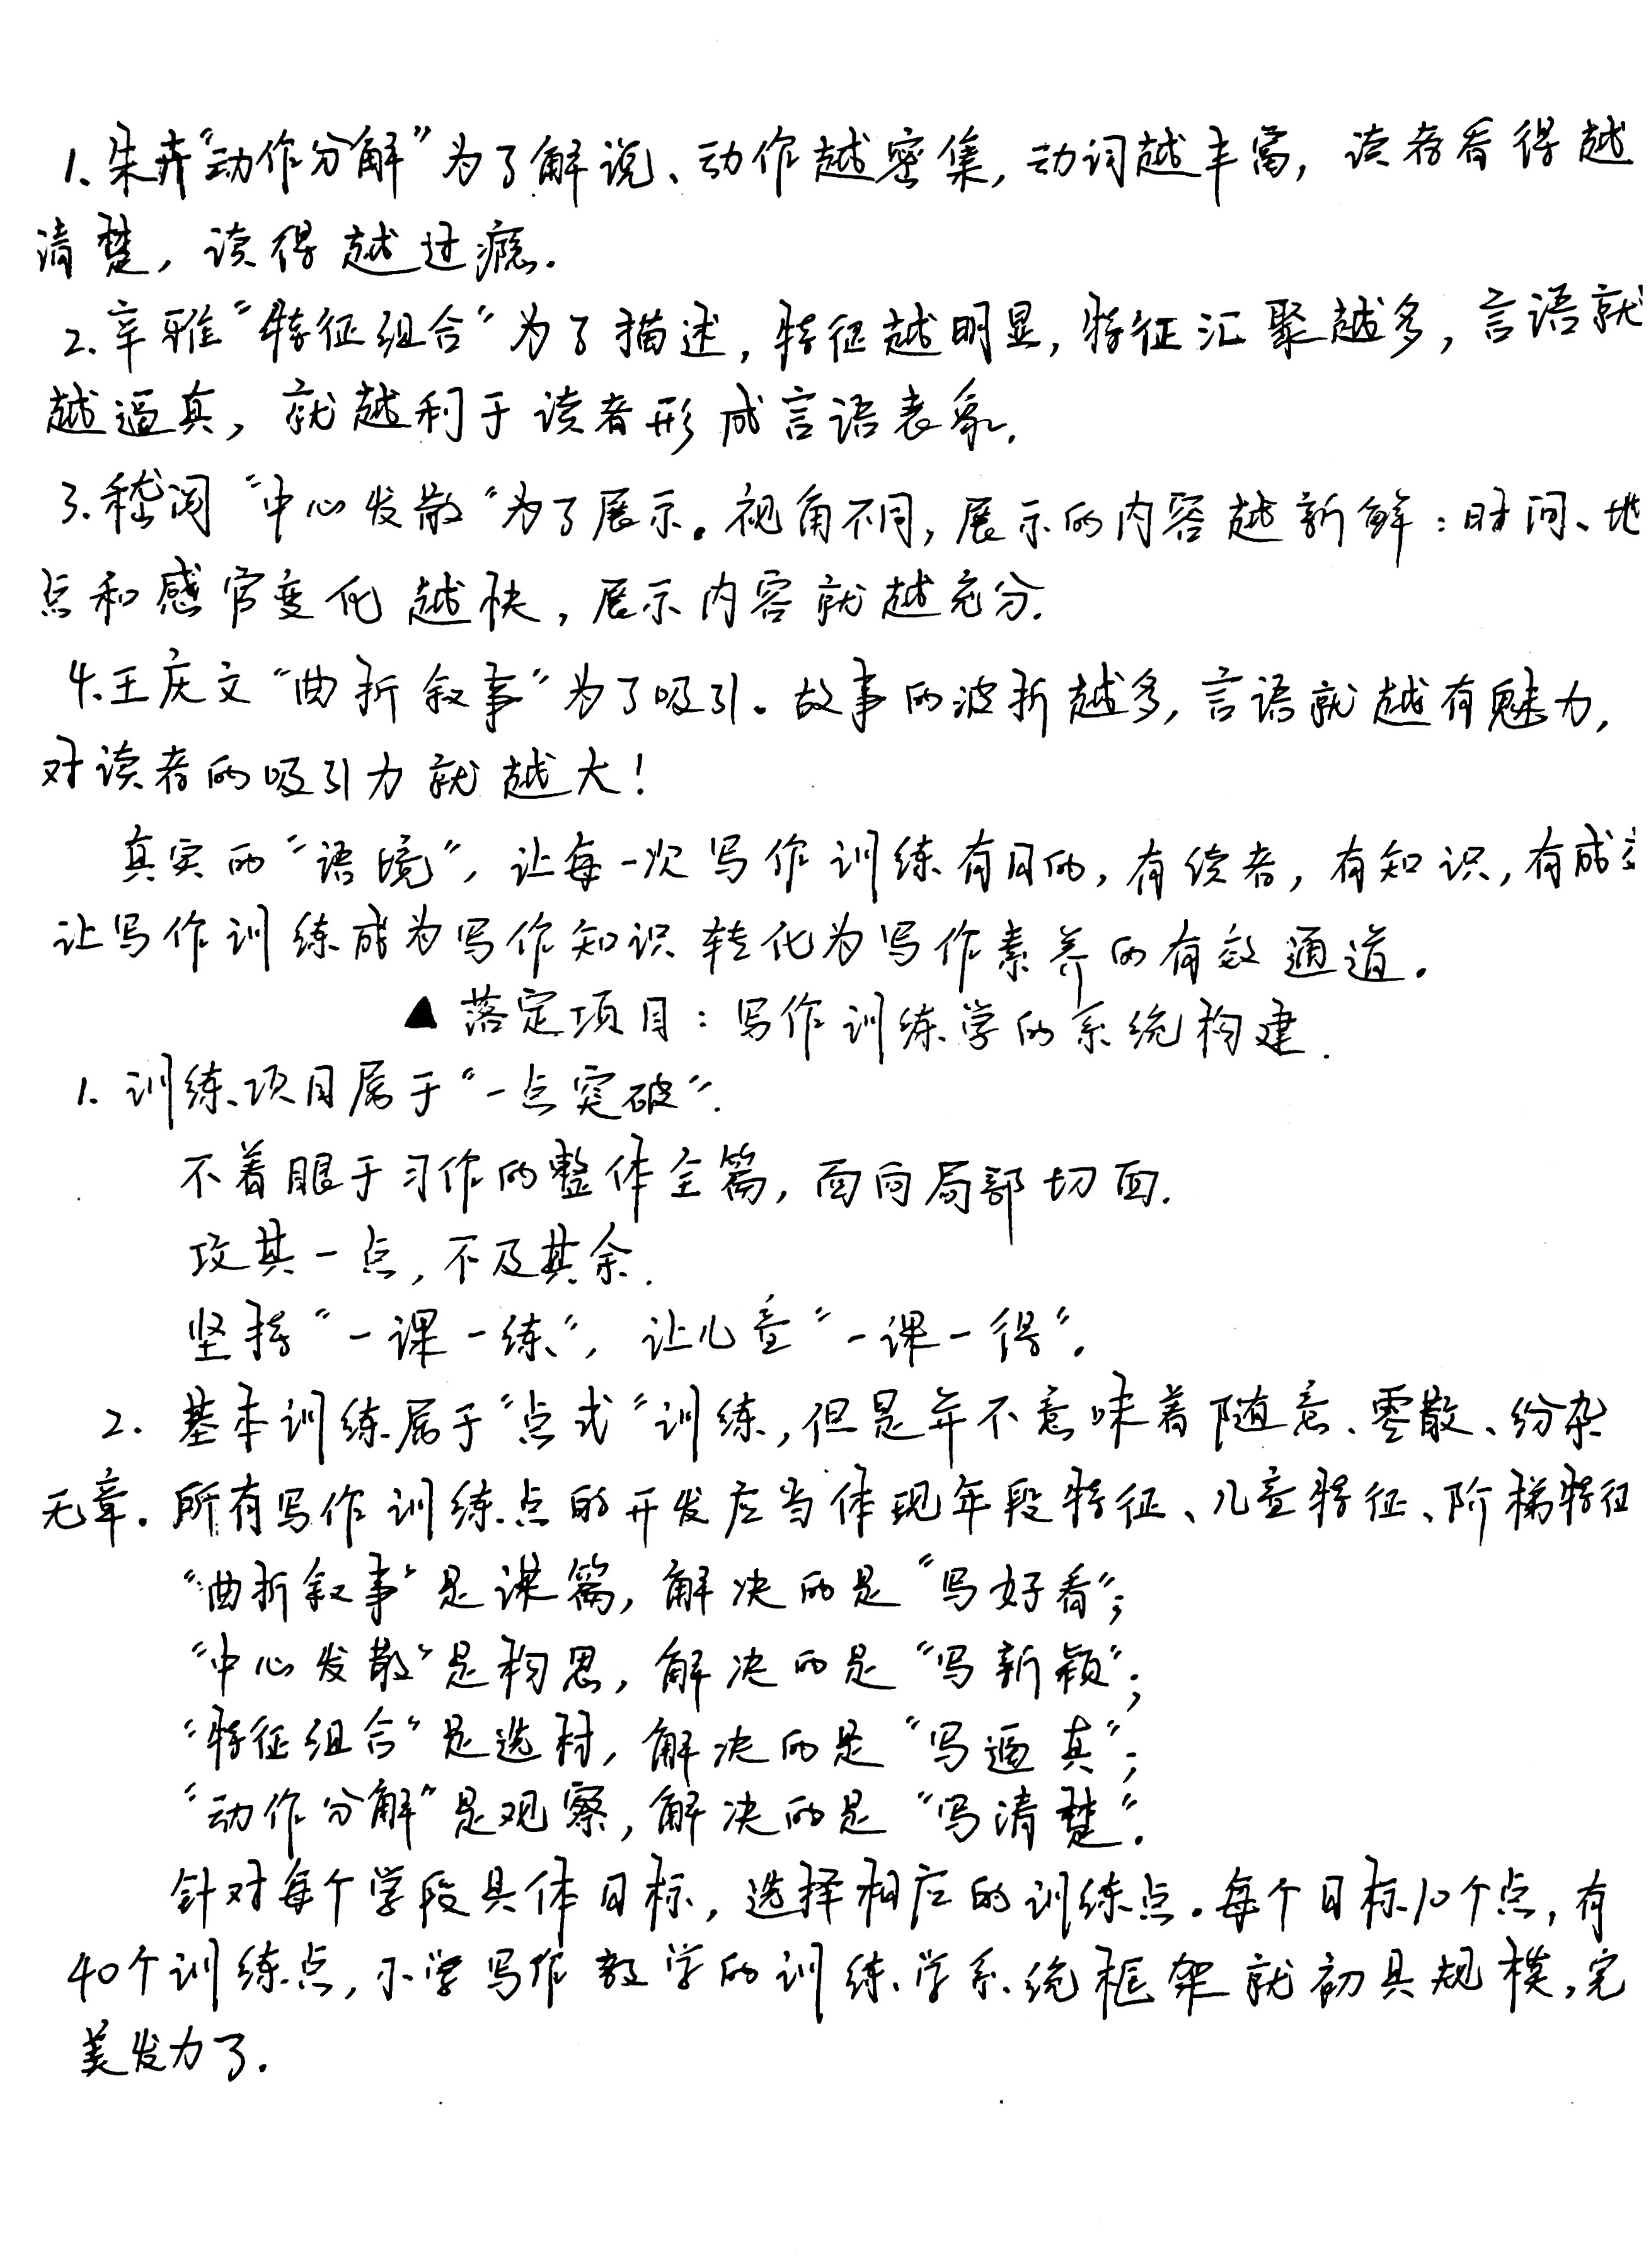 1、朱卉“动作分解”为了解说、动作越密集,动词越丰富,读者看得越
清楚,读得越过瘾.
2.辛雅“特征组合”为了描述,特征越明显,特征汇聚越多,言语就
越逼真,就越利于读者形成言语表象.
3.嵇闵“中心发散”为了展示。视角不同,展示的内容越新鲜:时间、地
点和感官变化越快,展示内容就越充分.
4.王庆文“曲折叙事”为了吸引。故事的波折越多,言语就越有魅力,
对读者的吸引力就越大!
真实的“语境”,让每一次写作训练有目的,有读者,有知识,有成
让写作训练成为写作知识转化为写作素养的有效通道。
▲落定项目:写作训练学的系统构建.
1.训练项目属于“一点突破”.
不着眼于习作的整体全篇,面向局部切面.
攻其一点,不及其余.
坚持“一课一练”,让儿童“一课一得”。
2.基本训练属于“点式”训练,但是并不意味着随意、零散、纷杂
无章.所有写作训练点的开发应当体现年段特征、儿童特征、阶梯特征
“曲折叙事”是谋篇,解决的是“写好看”;
“中心发散”是构思,解决的是“写新颖”;
“特征组合”是选材,解决的是“写逼真”;
“动作分解”是观察,解决的是“写清楚”.
针对每个学段具体目标,选择相应的训练点.每个目标10个点,有
40个训练点,小学写作教学的训练学系统框架就初具规模,完
美发力了.